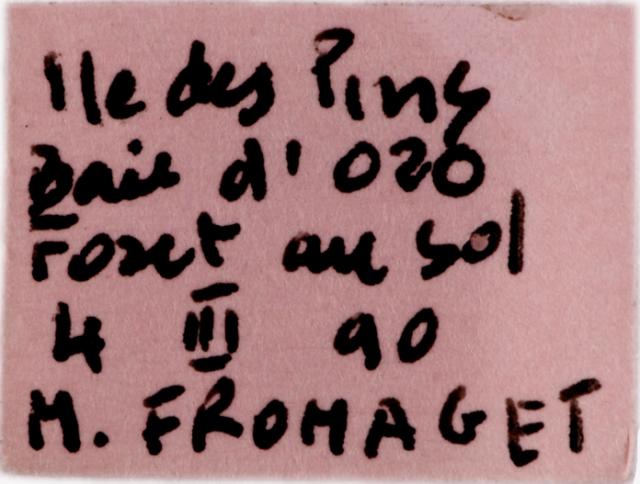 Ile des Pins
Baie d'ORO
Foret au sol
4 III 90
M. FROMAGET